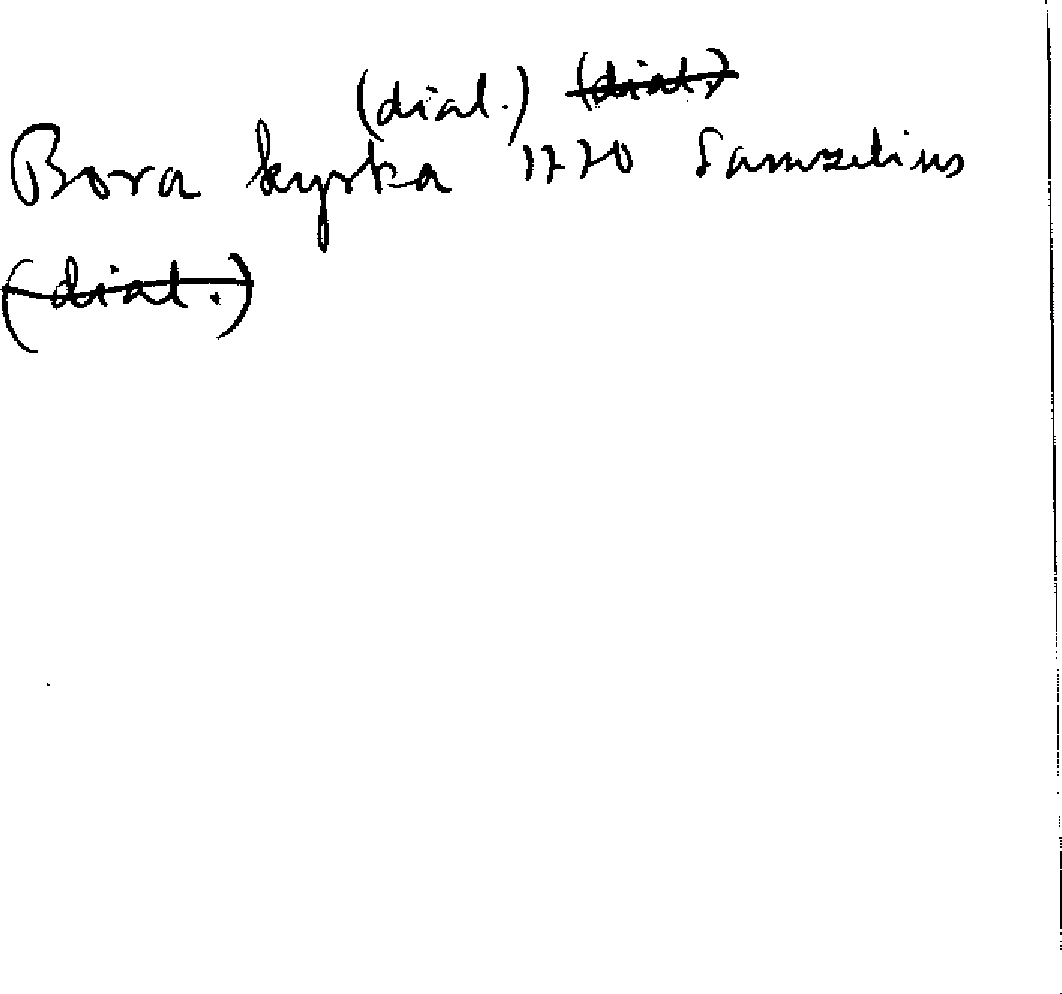 (dial.) (dial.)
Bora kyrka 1770 Samzelius
(dial.)